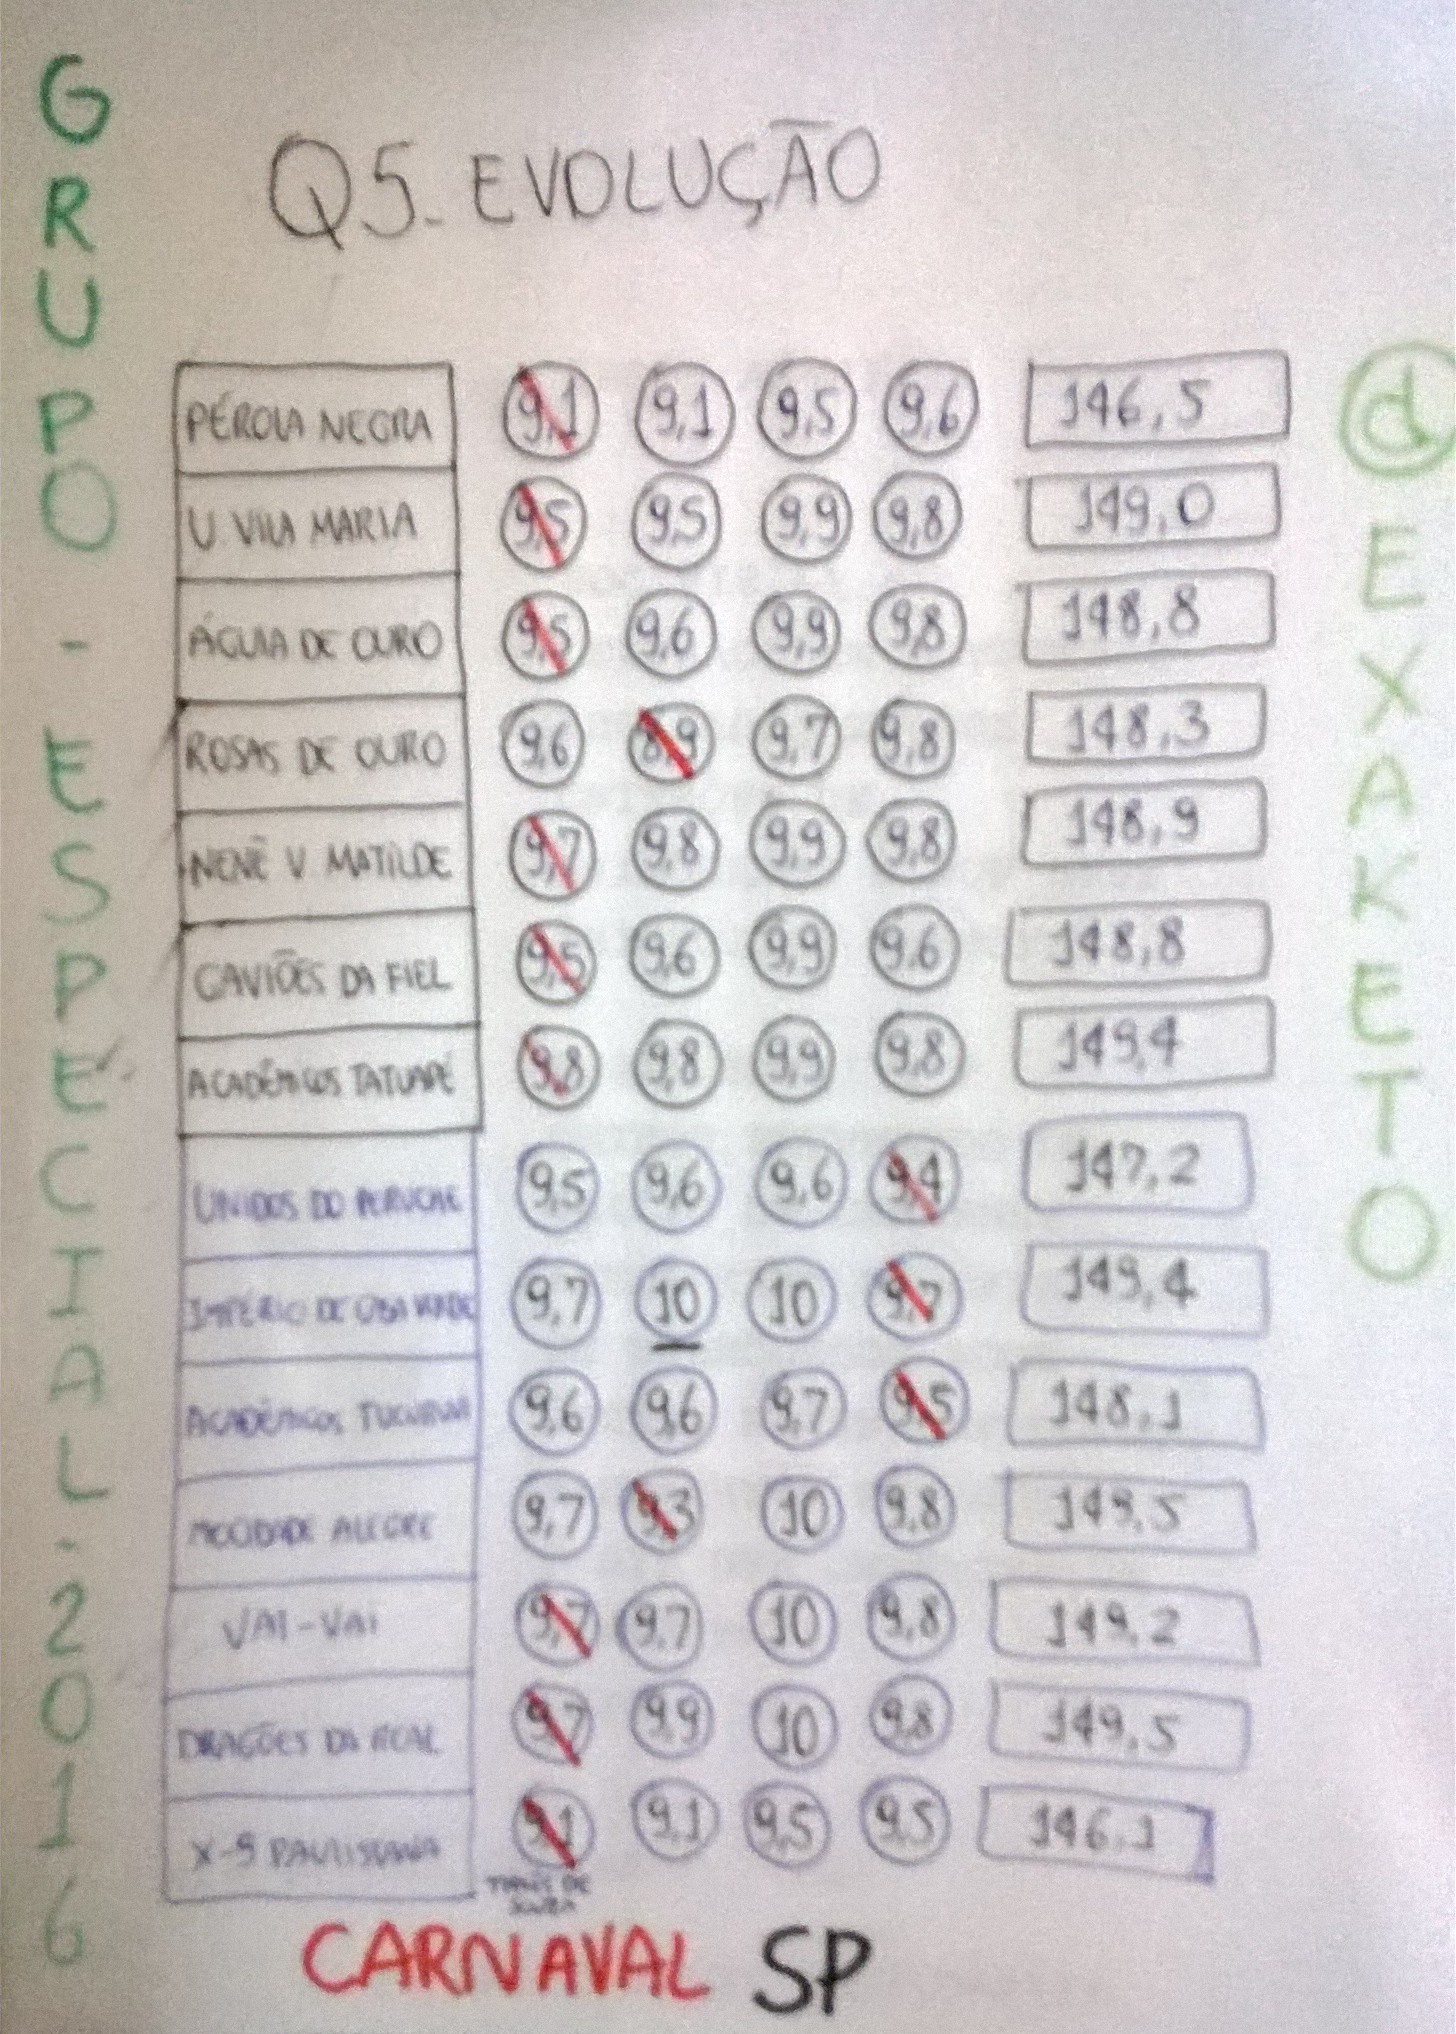 GRUPO - ESPECIAL - 2016
Q5. EVOLUÇÃO
PÉROLA NEGRA 9,1 9,1 9,5 9,6 146,5
U. VILA MARIA 9,5 9,5 9,9 9,8 149,0
ÁGUIA DE OURO 9,5 9,6 9,9 9,8 148,8
ROSAS DE OURO 9,6 8,9 9,7 9,8 148,3
NENÊ V. MATILDE 9,7 9,8 9,9 9,8 148,9
GAVIÕES DA FIEL 9,5 9,6 9,9 9,6 148,8
ACADÊMICOS TATUAPÉ 9,8 9,8 9,9 9,8 149,4
UNIDOS DO PERUCHE 9,5 9,6 9,6 9,4 147,2
IMPÉRIO DE CASA VERDE 9,7 10 10 9,7 149,4
ACADÊMICOS TUCURUVI 9,6 9,6 9,7 9,5 148,1
MOCIDADE ALEGRE 9,7 9,3 10 9,8 149,5
VAI-VAI 9,7 9,7 10 9,8 149,2
DRAGÕES DA REAL 9,7 9,9 10 9,8 149,5
X-9 PAULISTANA 9,1 9,1 9,5 9,5 146,1
CARNAVAL SP
@EXAKETO